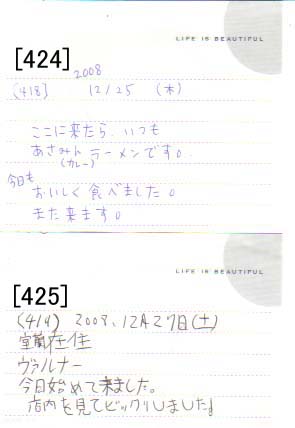 LIFE IS BEAUTIFUL
[424]
2008
(418) 12/25 (木)
ここに来たら、いつも
あさみんラーメンです。
(カレー)
今日も
おいしく食べました。
また来ます。
LIFE IS BEAUTIFUL
[425]
(419) 2008.12月27日(土)
室蘭在住
ヴァルナー
今日始めて来ました。
店内を見てビックリしました。